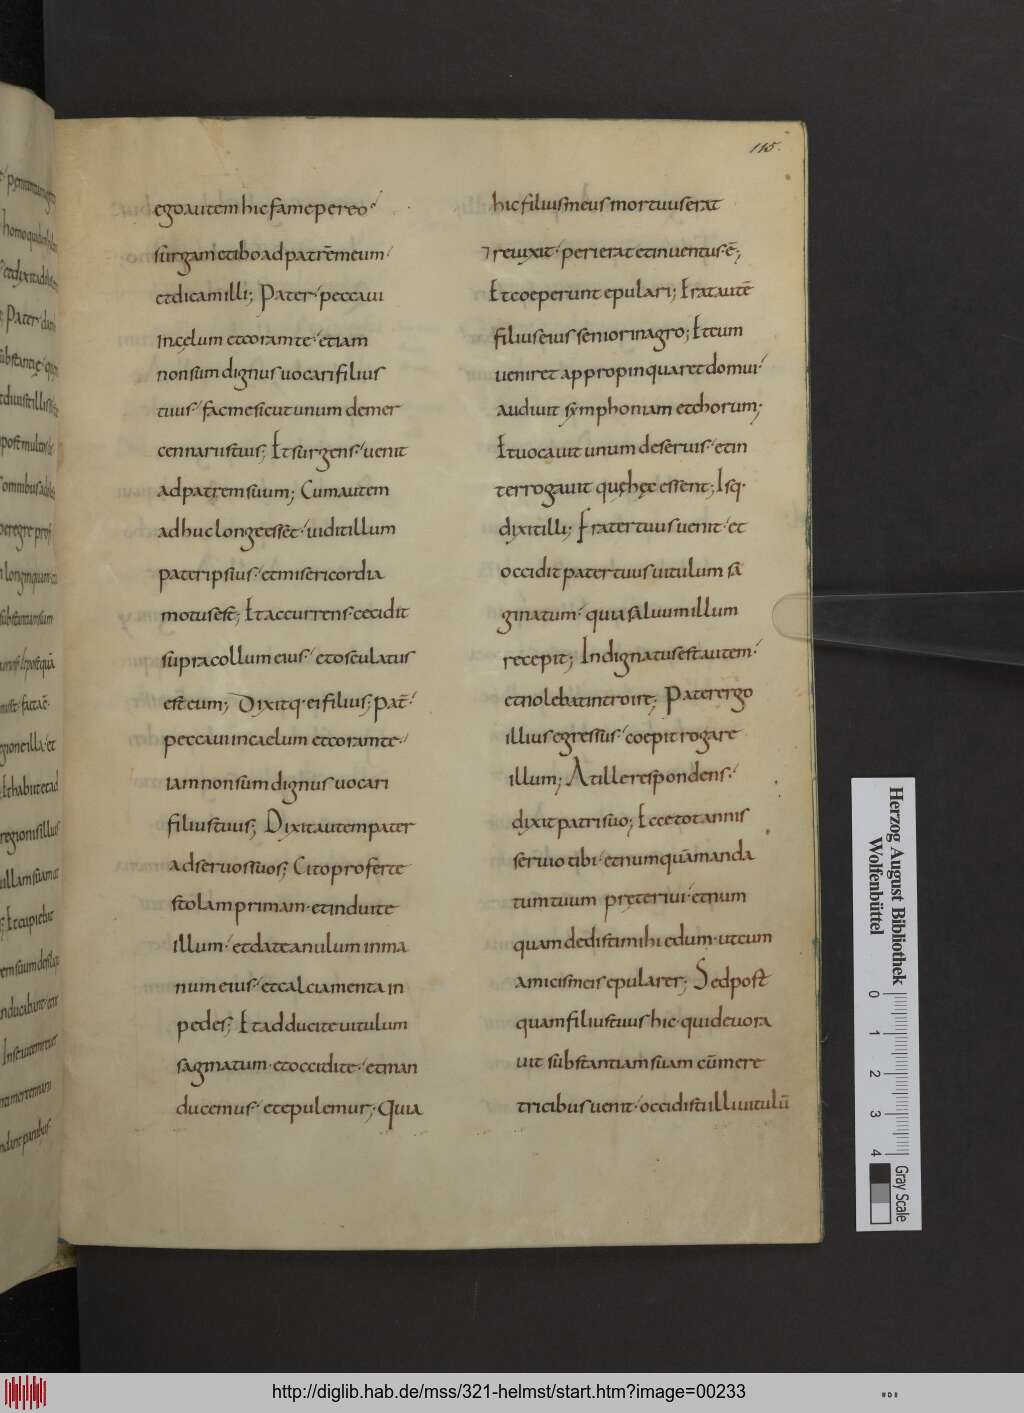 115.
ego autem hic fame pereo
surgam et ibo ad patrē meum·
et dicam illi; Pater· peccavi
in cęlum et coram te· et iam
non sum dignus vocari filius
tuus· fac me sicut unum de mer
cennariis tuis; Et surgens· venit
ad patrem suum; Cum autem
adhuc longe essēt· vidit illum
pater ipsius· et misericordia
motus est; Et accurrens· cecidit
supra collum eius· et osculatus
est eum; Dixitq· ei filius; pat̄·
peccavi in caelum et coram te·
iam non sum dignus vocari
filius tuus; Dixit autem pater
ad servos suos; Cito proferte
stolam primam· et induite
illum· et date anulum in ma
num eius· et calciamenta in
pedes; Et adducite vitulum
saginatum· et occidite· et man
ducemus· et epulemur; Quia
hic filius meus mortuus erat
⁊ revixit· perierat et inventus· ē;
Et coeperunt epulari; Erat autē
filius eius senior in agro; Et cum
veniret appropinquaret domui·
audivit symphoniam et chorum;
Et vocavit unum de servis· et in
terrogavit quę hęc essent; Isq·
dixit illi; Frater tuus venit· et
occidit pater tuus vitulum sa
ginatum· quia salvum illum
recepit; Indignatus est autem·
et nolebat introire; Pater ergo
illius egressus· coepit rogare
illum; At ille respondens·
dixit patri suo; Ecce tot annis
servio tibi· et numquā manda
tum tuum pręterivi· et num
quam dedisti mihi edum· ut cum
amicis meis epularer; Sed post
quam filius tuus hic· qui devora
vit substantiam suam cū mere
tricibus venit· occidisti illi vitulū
Herzog August Bibliothek
Wolfenbüttel
0 1 2 3 4
Gray Scale
http://diglib.hab.de/mss/321-helmst/start.htm?image=00233